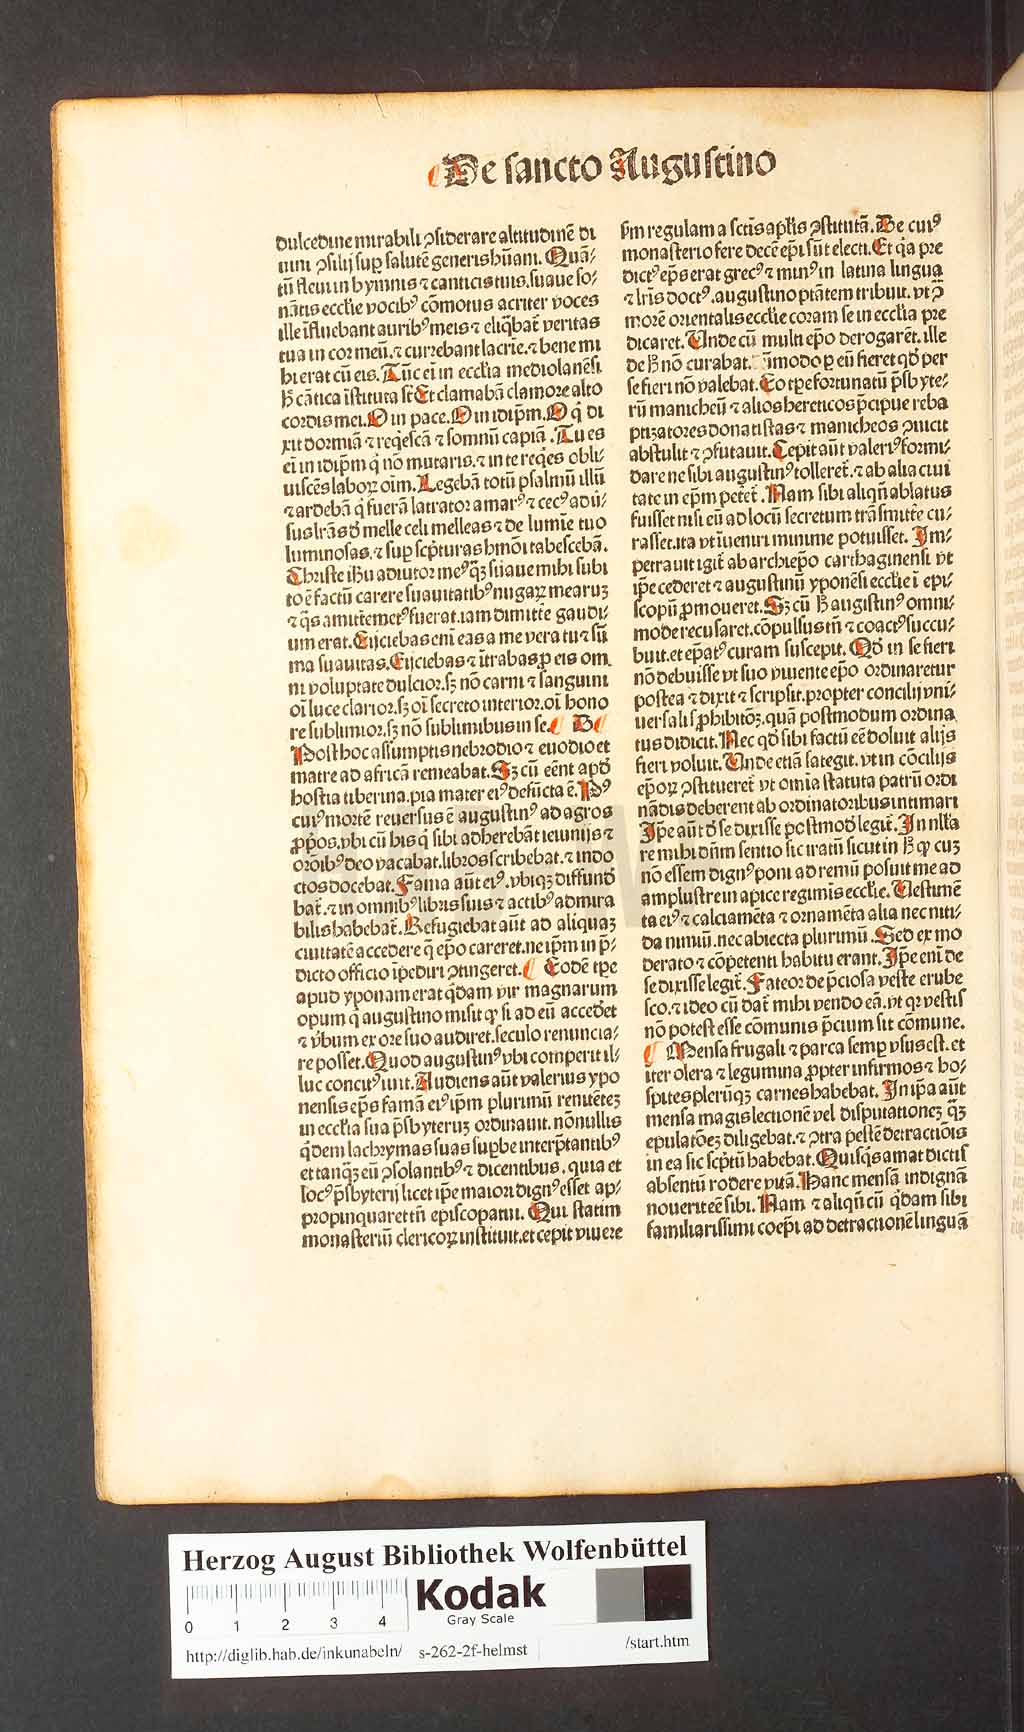 De sancto Augustino
dulcedine mirabili ꝯsiderare altitudinē di
uini ꝯsilij sup̱ salutē generis hūani. Quā⸗
tū fleui in hymnis ⁊ canticis tuis. suaue so⸗
nātis eccl'ie vocibꝰ cōmotus acriter voces
ille īfluebant auribꝰ meis ⁊ eliq̄bat̄ veritas
tua in cor meū. ⁊ currebant lacrīe. ⁊ bene mi
hi erat cū eis. Tūc eī in eccl'ia mediolanēsi.
hˉ cātica īstituta st̄ Et clamabā clamore alto
cordis mei. O in pace. O in idip̄m. O q̄ di
xit dormiā ⁊ req̄escā ⁊ somnū capiā. Tu es
ei in idip̄m q̄ nō mutaris. ⁊ in te req̄es obli⸗
uiscēs laboꝝ oīm. Legebā totū psalmū illū
⁊ ardebā q̄ fuerā latrator amarꝰ ⁊ cecꝰ aduē⸗
sus lrās de melle celi melleas ⁊ de lumīe tuo
luminosas. ⁊ sup̱ scp̄turas hmōi tabescebā.
Christe ih̄u adiutor meꝰ q̄ꝫ suaue mihi subi
to ē factū carere suauitatibꝰ nugaꝝ mearuꝫ
⁊ q̄s amittere metꝰ fuerat. iam dimittē gaudi⸗
um erat. Eijciebas enī eas a me vera tu ⁊ sū
ma suauitas. Eijciebas ⁊ ītrabas ꝓ eis om
ni voluptate dulcior. sꝫ nō carni ⁊ sanguini
oī luce clarior. sꝫ oī secreto interior. oī hono
re sublimior. sꝫ nō sublimibus in se. B
Post hoc assumptis nebrodio ⁊ euodio et
matre ad africā remeabat. Sꝫ cū eēnt apd̄
hostia tiberina. pia mater eiꝰ defūcta ē. Pꝰ
cuiꝰ mortē reuersus ē augustinꝰ ad agros
ꝓp̄os. vbi cū his q̄ sibi adherebāt ieiunijs ⁊
orōibꝰ deo vacabat. libros scribebat. ⁊ indo
ctos docebat. Fama aūt eiꝰ. vbiqꝫ diffund
bat̄. ⁊ in omnibꝰ libris suis ⁊ actibꝰ admira
bilis habebat̄. Refugiebat aūt ad aliquaꝫ
ciuitatē accedere q̄ ep̄o careret. ne ip̄m in p̄⸗
dicto officio īpediri ꝯtingeret. Eodē tp̱e
apud yponam erat q̄dam vir magnarum
opum q̄ augustino misit ꝙ si ad eū accedet
⁊ v̄bum ex ore suo audiret. seculo renuncia⸗
re posset. Quod augustinꝰ vbi comperit il⸗
luc concitꝰ iuit. Audiens aūt valerius ypo
nensis ep̄s famā eiꝰ ip̄m plurimū renitēteꝫ
in eccl'ia sua p̄sbyteruꝫ ordinauit. nōnullis
q̄dem lachrymas suas sup̱be interp̄tantibꝰ
et tanq̄ꝫ eū ꝯsolantibꝰ ⁊ dicentibus. quia et
locꝰ p̄sbyterij licet ip̄e maiori dignꝰ esset ap⸗
propinquaret tn̄ episcopatui. Qui statim
monasteriū clericoꝝ instituit. et cepit viuere
sm̄ regulam a sct̄is ap̱lis ꝯstitutā. De cuiꝰ
monasterio fere decē ep̄i sūt electi. Et q̄a pre
dictꝰ ep̄s erat grecꝰ ⁊ minꝰ in latina lingua
⁊ lr̄is doctꝰ. augustino ptātem tribuit. vt ꝯ̄
morē orientalis eccl'ie coram se in eccl'ia pre
dicaret. Unde cū multi ep̄o derogarēt. ille
de hˉ nō curabat. modo ꝑ eū fieret qd̄ per
se fieri nō valebat. Eo tp̱e fortunatū p̄sbyte⸗
rū manicheū ⁊ alios hereticos p̄cipue reba
ptizatores donatistas ⁊ manicheos ꝯuicit
abstulit ⁊ ꝯfutauit. Cepit aūt valeriꝰ formi⸗
dare ne sibi augustinꝰ tolleret̄. ⁊ ab alia ciui
tate in ep̄m petet̄. Nam sibi aliqn̄ ablatus
fuisset nisi eū ad locū secretum trāsmittē cu⸗
rasset. ita vt īueniri minime potuisset. Im⸗
petrauit igit̄ ab archiep̄o carthaginensi vt
ip̄e cederet ⁊ augustinū yponēsi eccl'ie ī epi⸗
scopū ꝓmoueret. Sꝫ cū hˉ augistinꝰ omni⸗
mode recusaret. cōpulsus tn̄ ⁊ coactꝰ succu⸗
buit. et ep̄atꝰ curam suscepit. Qd̄ in se fieri
nō debuisse vt suo viuente ep̄o ordinaretur
postea ⁊ dixit ⁊ scripsit. propter concilij vni⸗
uersalis ꝓhibitōꝫ. quā postmodum ordina
tus didicit. Nec qd̄ sibi factū eē doluit alijs
fieri voluit. Unde etiā sategit. vt in cōcilijs
ep̄oꝝ ꝯstitueret̄ vt omīa statuta patrū ordi
nādis deberent ab ordinatoribus intimari
Ip̄e aūt d̄ se dixisse postmod̄ legit̄. In nlla
re mihi dn̄m sentio sic iratū sicut in hˉ ꝙ cuꝫ
nō essem dignꝰ poni ad remū posuit me ad
amplustre in apice regimīs eccl'ie. Uestimē
ta eiꝰ ⁊ calciamēta ⁊ ornamēta alia nec niti⸗
da nimiū. nec abiecta plurimū. Sed ex mo
derato ⁊ cōpetenti habitu erant. Ip̄e enī de
se dixisse legit̄. Fateor de p̄ciosa veste erube
sco. ⁊ ideo cū dat̄ mihi vendo eā. vt qr vestis
nō potest esse cōmunis p̄cium sit cōmune.
Mensa frugali ⁊ parca semp̱ vsus est. et
iter olera ⁊ legumina ꝓpter infirmos ⁊ ho⸗
spites plerūqꝫ carnes habebat. In ip̄a aūt
mensa magis lectionē vel disputationeꝫ q̄ꝫ
epulatōeꝫ diligebat. ⁊ ꝯtra pestē detractiōis
in ea sic scp̄tū habebat. Quisq̄s amat dictis
absentū rodere vitā. Hanc mensā indignā
nouerit eē sibi. Nam ⁊ aliqn̄ cū q̄dam sibi
familiarissimi coep̄i ad detractionē linguā
Herzog August Bibliothek Wolfenbüttel
0 1 2 3 4
Kodak
Gray Scale
http://diglib.hab.de/inkunabeln/ s-262-2f-helmst /start.htm